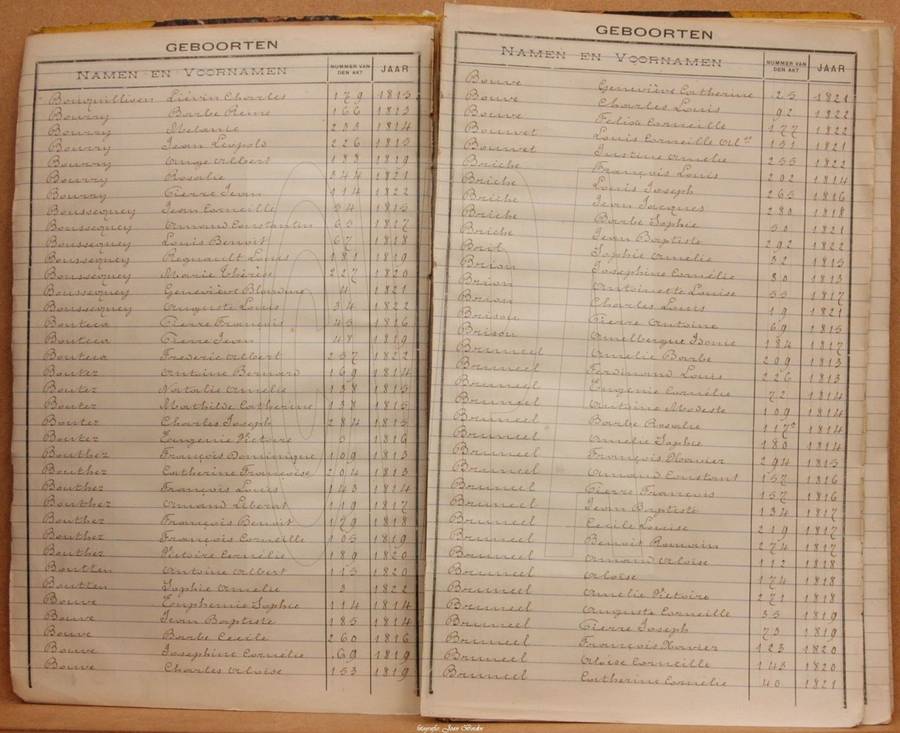 GEBOORTEN
NAMEN EN VOORNAMEN NUMMER VAN DEN AKT JAAR
Bouquillisen Liévin Charles 179 1813
Bourry Barbe Reine 166 1813
Bourry Melanie 233 1814
Bourry Jean Léopold 226 1815
Bourry Ange Albert 188 1819
Bourry Rosalie 344 1821
Bourry Pierre Jean 114 1822
Boussequey Jean Corneille 24 1815
Boussequey Armand Constantin 63 1817
Boussequey Louis Benoit 67 1818
Boussequey Regnault Louis 181 1819
Boussequey Marie Thérèse 227 1820
Boussequey Geneviève Blandine 4 1821
Boussequey Auguste Louis 34 1822
Bouteca Pierre François 45 1816
Bouteca Pierre Jean 48 1819
Bouteca Frederic Albert 257 1822
Boutez Antoine Bernard 169 1814
Boutez Natalie Amelie 188 1815
Boutez Mathilde Catherine 138 1815
Boutez Charles Joseph 284 1815
Boutez Eugenie Victoire 5 1816
Bouthez François Dominique 109 1813
Bouthez Catherine Françoise 204 1813
Bouthez François Louis 143 1814
Bouthez Armand Liberat 119 1817
Bouthez François Benoit 179 1818
Bouthez François Corneille 105 1819
Bouthez Victoire Cornélie 189 1820
Boutten Antoine Albert 115 1820
Boutten Sophie Amelie 3 1822
Bouve Euphemie Sophie 114 1814
Bouve Jean Baptiste 185 1814
Bouve Barbe Cecile 260 1816
Bouve Josephine Cornelie 69 1819
Bouve Charles Aloise 153 1819
GEBOORTEN
NAMEN EN VOORNAMEN NUMMER VAN DEN AKT JAAR
Bouve Geneviève Catherine 25 1821
Bouve Charles Louis 92 1822
Bouve Felix Corneille 177 1822
Bouvet Louis Corneille 151 1821
Bouvet Justine Amelie 255 1822
Briche François Louis 202 1814
Briche Louis Joseph 265 1816
Briche Jean Jacques 280 1818
Briche Barbe Sophie 50 1821
Briche Jean Baptiste 292 1822
Brid Sophie Amelie 32 1815
Brion Josephine Cornélie 80 1813
Brion Antoinette Louise 55 1817
Brion Charles Louis 19 1821
Brison Pierre Antoine 69 1815
Brison Amelbergue Idonie 184 1817
Bruneel Amelie Barbe 209 1813
Bruneel Ferdinand Louis 226 1813
Bruneel Eugenie Cornélie 72 1814
Bruneel Antoine Modeste 109 1814
Bruneel Barbe Rosalie 117 1814
Bruneel Amelie Sophie 189 1814
Bruneel François Xavier 294 1815
Bruneel Armand Constant 157 1816
Bruneel Pierre François 157 1816
Bruneel Jean Baptiste 134 1817
Bruneel Cecile Louise 219 1817
Bruneel Benoit Romain 274 1817
Bruneel Armand Aloise 112 1818
Bruneel Aloise 174 1818
Bruneel Amelie Victoire 271 1818
Bruneel Auguste Corneille 35 1819
Bruneel Pierre Joseph 73 1819
Bruneel François Xavier 123 1820
Bruneel Aloise Corneille 143 1820
Bruneel Catherine Cornélie 40 1821